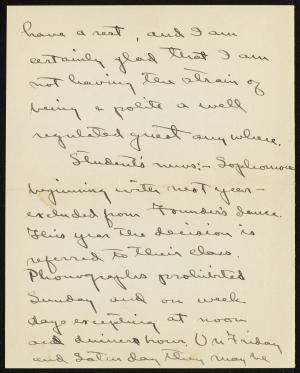 have a rest, and I am
certainly glad that I am
not having the strain of
being a polite & well
regulated guest anywhere.
Students news:- Sophomores
beginning with next year -
excluded from Founder's Dance.
This year the decision is
referred to their class.
Phonographs prohibited
Sunday and on week
days excepting at noon
and dinner hour. On Friday
and Saturday they may be